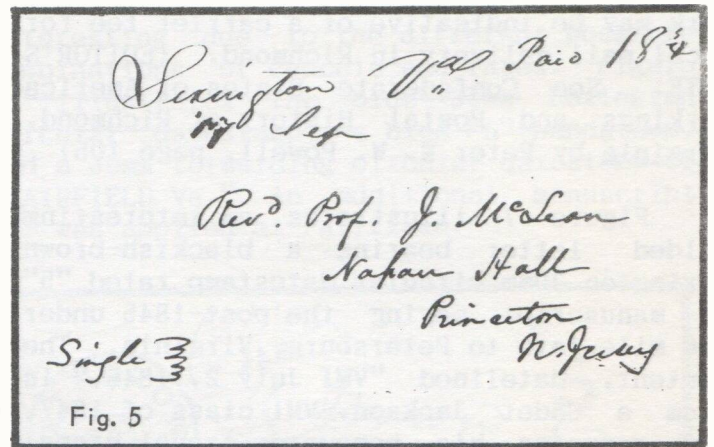 Lexington Va. Paid 18¾
Sep
Revd. Prof. J. McLean
Nassau Hall
Princeton
N. Jersey
Single
Fig. 5